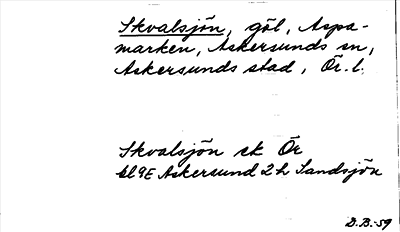 Skvalsjön, göl, Aspa-
marken, Askersunds sn,
Askersunds stad, Ör. l.
Skvalsjön sk Ör
bl 9E Askersund 2 h Sandsjön
D.B.-59